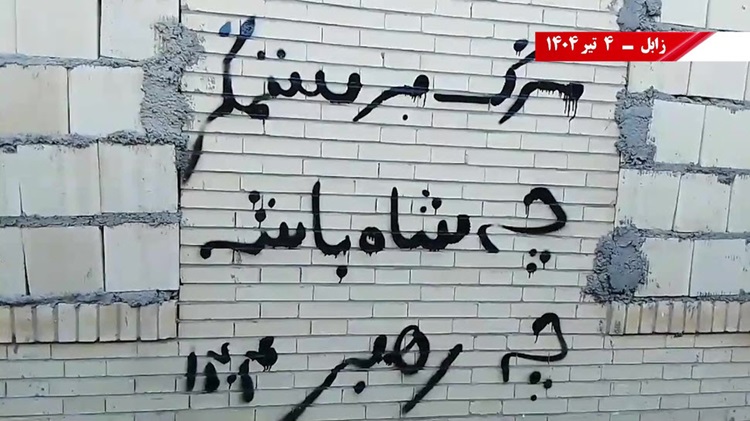 زابل – ۴ تیر ۱۴۰۴
مرگ بر ستمگر
چه شاه باشه
چه رهبر ۱۴۰۴